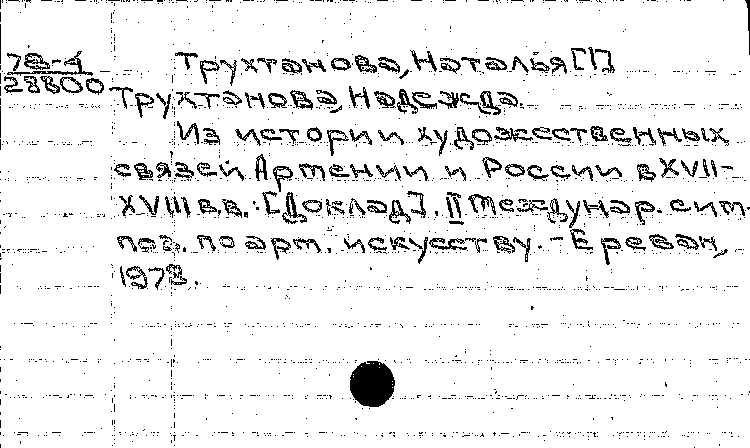 78-4
28800
Трухтанова, Наталья [!]
Трухтанова, Надежда.
Из истории художественных
связей Армении и России в XVII-
XVIII в.в.: [Доклад]. II Междунар. сим-
поз. по арм. искусству. - Ереван,
1978.